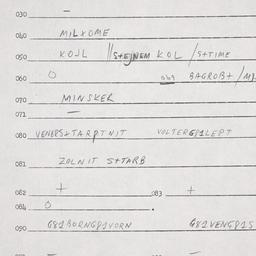 030 —
040 MILKOME
050 KOJL //STEJNEM KOL /STTIME
060 O 069 BAGROBT /
070 MINSKER
071 —
080 VENERSKTARPTNIT VOLTERGPILEPT
081 ZOLNIT STTARB
082 + 083 +
084 O
090 G81BORNGPIVORN G81VENGPIS